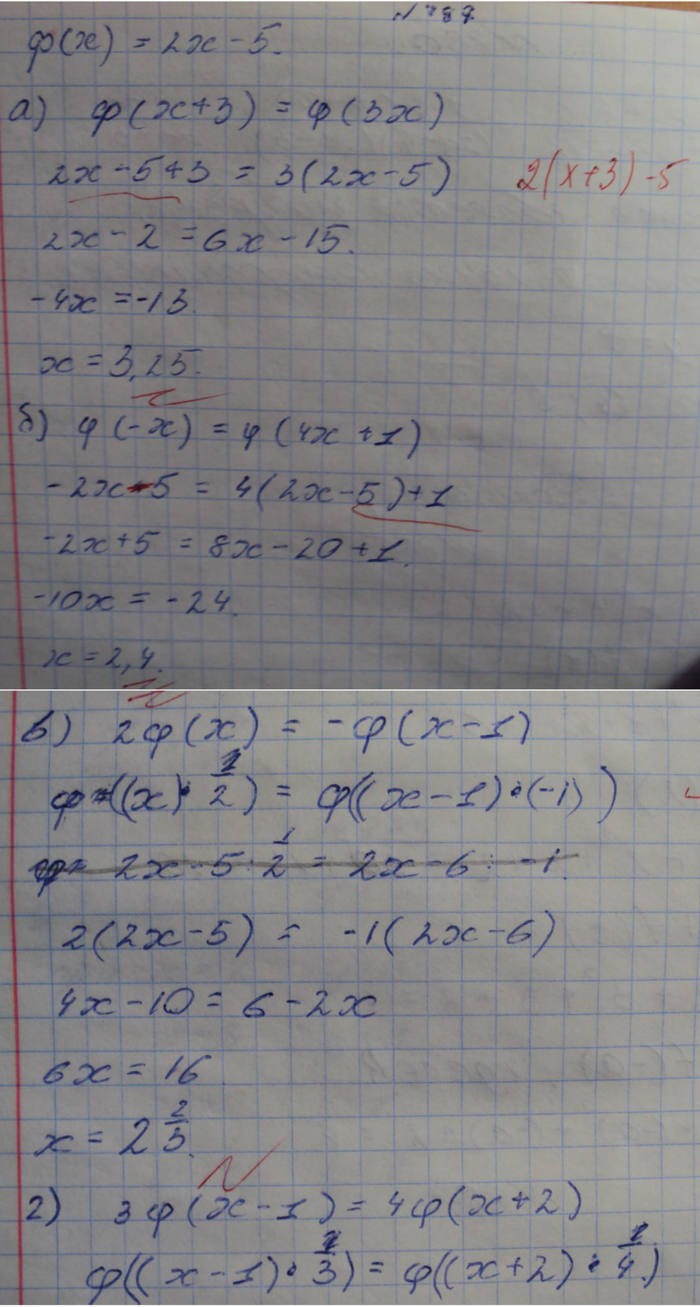 № 787
φ(x) = 2x - 5.
а) φ(x+3) = φ(3x)
2x - 5 + 3 = 3(2x - 5) 2(x+3) - 5
2x - 2 = 6x - 15.
-4x = -13
x = 3,25.
б) φ(-x) = φ(4x + 1)
-2x - 5 = 4(2x - 5) + 1
-2x + 5 = 8x - 20 + 1.
-10x = -24.
x = 2,4.
в) 2φ(x) = -φ(x - 1)
φ((x) · 1/2) = φ((x - 1) · (-1))
φ = 2x - 5 : 1/2 = 2x - 6 : -1.
2(2x - 5) = -1(2x - 6)
4x - 10 = 6 - 2x
6x = 16
x = 2 2/5.
г) 3φ(x - 1) = 4φ(x + 2)
φ((x - 1) · 1/3) = φ((x + 2) · 1/4)